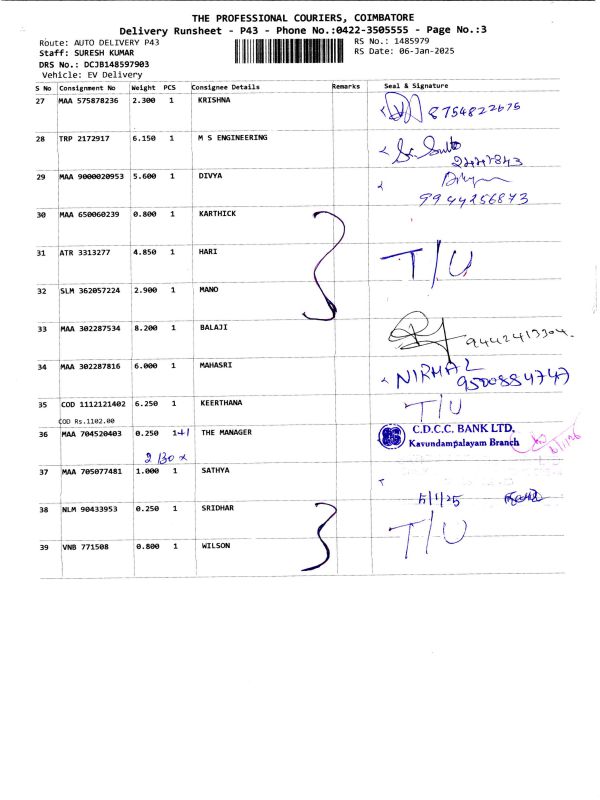 THE PROFESSIONAL COURIERS, COIMBATORE
Delivery Runsheet - P43 - Phone No.:0422-3505555 - Page No.:3
Route: AUTO DELIVERY P43 RS No.: 1485979
Staff: SURESH KUMAR RS Date: 06-Jan-2025
DRS No.: DCJB148597903
Vehicle: EV Delivery
S No Consignment No Weight PCS Consignee Details Remarks Seal & Signature
27 MAA 575878236 2.300 1 KRISHNA 8754822675
28 TRP 2172917 6.150 1 M S ENGINEERING
2447843
29 MAA 9000020953 5.600 1 DIVYA
9944256873
30 MAA 650060239 0.800 1 KARTHICK
31 ATR 3313277 4.850 1 HARI T/U
32 SLM 362057224 2.900 1 MANO
33 MAA 302287534 8.200 1 BALAJI 9442413304
34 MAA 302287816 6.000 1 MAHASRI NIRMAL
9500884747
35 COD 1112121402 6.250 1 KEERTHANA T/U
COD Rs.1102.00
36 MAA 704520403 0.250 1+1 THE MANAGER C.D.C.C. BANK LTD,
Kavundampalayam Branch
2 Box
37 MAA 705077481 1.000 1 SATHYA
38 NLM 90433953 0.250 1 SRIDHAR T/U
39 VNB 771508 0.800 1 WILSON